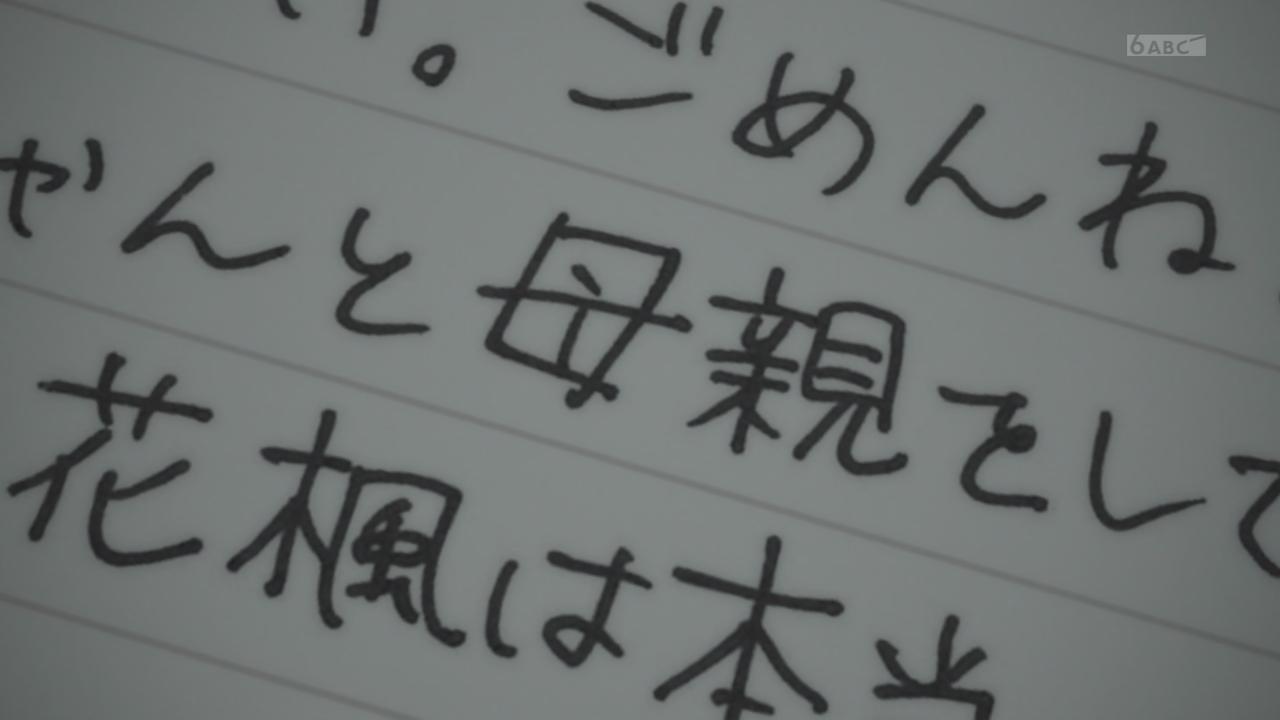 。ごめんね
ゃんと母親をして
花楓は本当
6 ABC